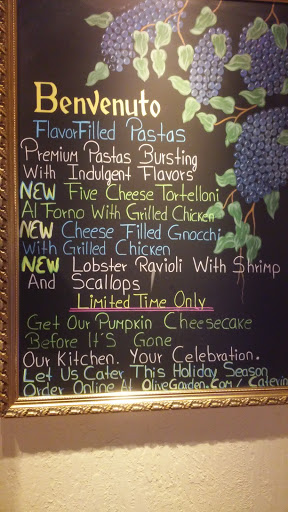 Benvenuto
FlavorFilled Pastas
Premium Pastas Bursting
With Indulgent Flavors
NEW Five Cheese Tortelloni
Al Forno With Grilled Chicken
NEW Cheese Filled Gnocchi
With Grilled Chicken
NEW Lobster Ravioli With Shrimp
And Scallops
Limited Time Only
Get Our Pumpkin Cheesecake
Before It'S Gone
Our Kitchen. Your Celebration.
Let Us Cater This Holiday Season
Order Online At OliveGarden.Com/Caterin